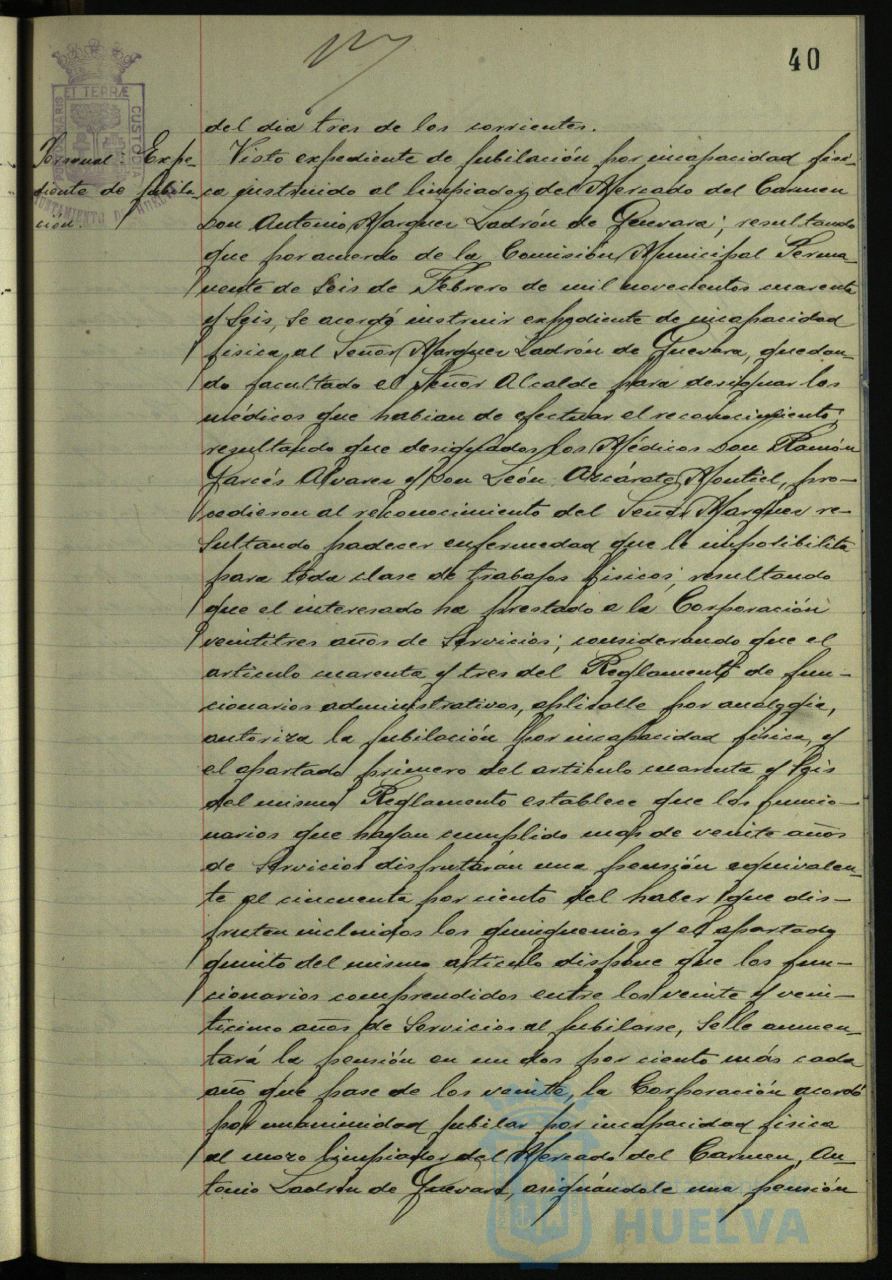 40
del dia tres de los corrientes.
Personal: Expe-
diente de jubila-
ción.
Visto expediente de jubilación por incapacidad físi-
ca instruido al limpiador del Mercado del Carmen
Don Antonio Marquez Ladrón de Guevara; resultando
que por acuerdo de la Comisión Municipal Perma-
nente de seis de Febrero de mil novecientos cuarenta
y seis, se acordó instruir expediente de incapacidad
física al Señor Marquez Ladrón de Guevara, quedan-
do facultado el Señor Alcalde para designar los
médicos que habian de efectuar el reconocimiento;
resultando que designados los Médicos Don Ramón
Garcés Alvarez y Don León Azcárate Montiel, pro-
cedieron al reconocimiento del Señor Marquez re-
sultando padecer enfermedad que le imposibilita
para toda clase de trabajos físicos; resultando
que el interesado ha prestado a la Corporación
veintitres años de servicios; considerando que el
articulo cuarenta y tres del Reglamento de fun-
cionarios administrativos, aplicable por analogia,
autoriza la jubilación por incapacidad física, y
el apartado primero del articulo cuarenta y seis
del mismo Reglamento establece que los funcio-
narios que hayan cumplido mas de veinte años
de servicios disfrutarán una pensión equivalen-
te al cincuenta por ciento del haber que dis-
fruten incluidos los quinquenios y el apartado
quinto del mismo articulo dispone que los fun-
cionarios comprendidos entre los veinte y vein-
ticinco años de servicios al jubilarse, se le aumen-
tará la pensión en un dos por ciento más cada
año que pase de los veinte, la Corporación acordó
por unanimidad jubilar por incapacidad física
al mozo limpiador del Mercado del Carmen, An-
tonio Ladrón de Guevara, asignándole una pensión
ET TERRÆ
CUSTODIA
PORTUS MARIS
AYUNTAMIENTO DE HUELVA
HUELVA